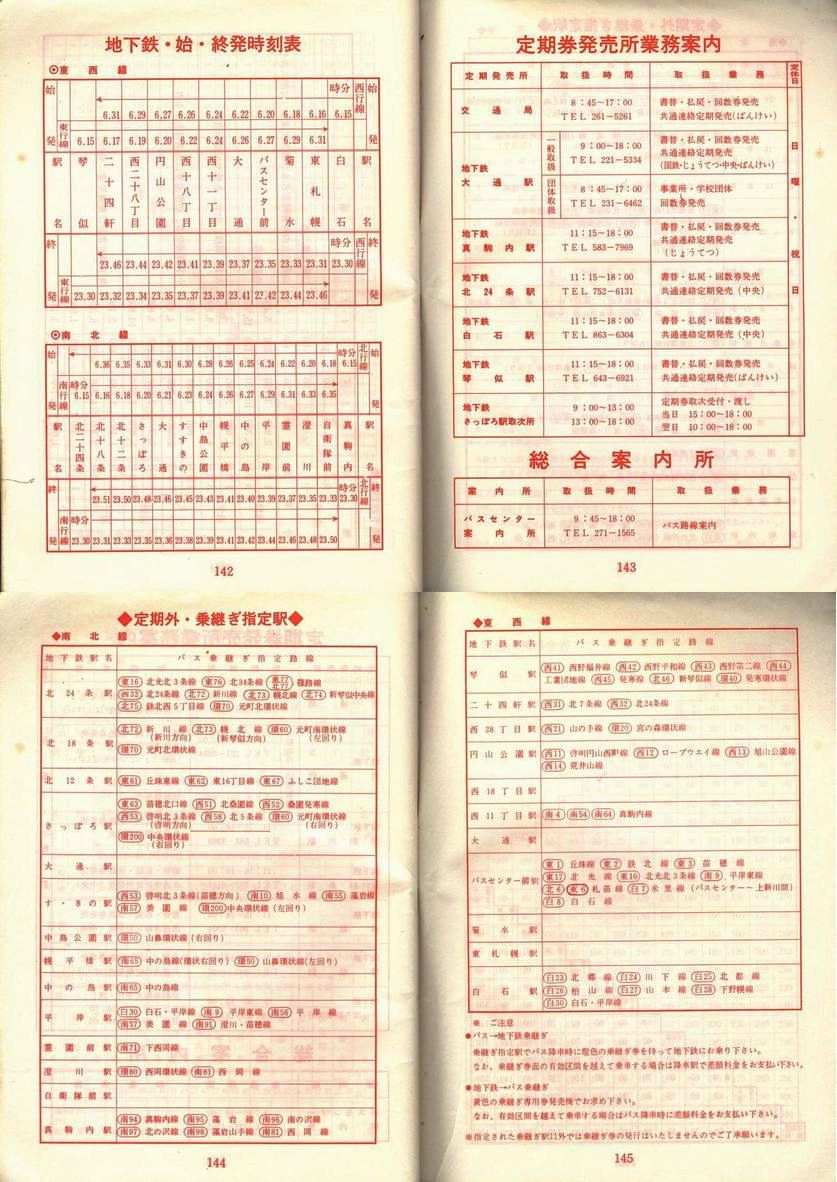 地下鉄・始・終発時刻表
◉東西線
始発
時分 西行線 始
6.31 6.29 6.27 6.26 6.24 6.22 6.20 6.18 6.16 6.15
東行線 6.15 6.17 6.19 6.20 6.22 6.24 6.26 6.27 6.29 6.31 発
駅名 琴似 二十四軒 西二十八丁目 円山公園 西十八丁目 西十一丁目 大通 バスセンター前 菊水 東札幌 白石 駅名
終発
時分 西行線 終
23.46 23.44 23.42 23.41 23.39 23.37 23.35 23.33 23.31 23.30
東行線 23.30 23.32 23.34 23.35 23.37 23.39 23.41 23.42 23.44 23.46 発
◉南北線
始発
時分 北行線 始
6.36 6.35 6.33 6.31 6.30 6.28 6.26 6.25 6.24 6.22 6.20 6.18 6.15
南行線 時分
6.15 6.16 6.18 6.20 6.21 6.23 6.24 6.26 6.27 6.29 6.31 6.33 6.35 発
駅名 北二十四条 北十八条 北十二条 さっぽろ 大通 すすきの 中島公園 幌平橋 中の島 平岸 霊園前 澄川 自衛隊前 真駒内 駅名
終発
時分 北行線 終
23.51 23.50 23.48 23.46 23.45 23.43 23.41 23.40 23.39 23.37 23.35 23.33 23.30
南行線 時分
23.30 23.31 23.33 23.35 23.36 23.38 23.39 23.41 23.42 23.44 23.46 23.48 23.50 発
142
定期券発売所業務案内
定期発売所 取扱時間 取扱業務 定休日
交通局 8:45〜17:00 書替・払戻・回数券発売
TEL 261-5261 共通連絡定期発売(ばんけい)
地下鉄 大通駅
一般取扱 9:00〜18:00 書替・払戻・回数券発売
TEL 221-5334 共通連絡定期発売
(国鉄・じょうてつ・中央・ばんけい)
団体取扱 8:45〜17:00 事業所・学校団体
TEL 231-6462 回数券発売
地下鉄 11:15〜18:00 書替・払戻・回数券発売
真駒内駅 TEL 583-7969 共通連絡定期発売
(じょうてつ)
地下鉄 11:15〜18:00 書替・払戻・回数券発売
北24条駅 TEL 752-6131 共通連絡定期発売(中央)
地下鉄 11:15〜18:00 書替・払戻・回数券発売
白石駅 TEL 863-6304 共通連絡定期発売(中央)
地下鉄 11:15〜18:00 書替・払戻・回数券発売
琴似駅 TEL 643-6921 共通連絡定期発売(ばんけい)
地下鉄 9:00〜13:00 定期券取次受付・渡し
さっぽろ駅取次所 13:00〜18:00 当日 15:00〜18:00
翌日 10:00〜18:00
日曜・祝日
総合案内所
案内所 取扱時間 取扱業務
バスセンター 9:45〜18:00 バス路線案内
案内所 TEL 271-1565
143
◆定期外・乗継ぎ指定駅◆
◆南北線
地下鉄駅名 バス乗継ぎ指定路線
北24条駅 東16 北光北3条線 東76 北34条線 東77 北77 篠路線
西32 北24条線 北72 新川線 北73 幌北線 北74 新琴似中央線
北75 鉄北西5丁目線 環70 元町北環状線
北18条駅 北72 新川線 北73 幌北線 環60 元町南環状線
(新川方向) (新琴似方向) (左回り)
環70 元町北環状線
北12条駅 東61 丘珠東線 東62 東16丁目線 東67 ふしこ団地線
さっぽろ駅 東63 苗穂北口線 西51 北桑園線 西52 桑園発寒線
西53 啓明北3条線 西58 北5条線 環60 元町南環状線
(啓明方向) (右回り)
環200 中央環状線
(右回り)
大通駅
す・きの駅 西53 啓明北3条線(苗穂方向) 南10 旭水線 南55 藻岩線
南57 美園線 環200 中央環状線(左回り)
中島公園駅 環50 山鼻環状線(右回り)
幌平橋駅 南65 中の島線(環状右回り) 環50 山鼻環状線(左回り)
中の島駅 南65 中の島線
平岸駅 白30 白石・平岸線 南9 平岸東線 南56 平岸線
南57 美園線 南91 澄川・苗穂線
霊園前駅 南71 下西岡線
澄川駅 環80 西岡環状線 南81 西岡線
自衛隊前駅
真駒内駅 南94 真駒内線 南95 藻岩線 南96 南の沢線
南97 北の沢線 南98 藻岩山手線 南81 西岡線
144
◆東西線
地下鉄駅名 バス乗継ぎ指定路線
琴似駅 西41 西野福井線 西42 西野平和線 西43 西野第二線 西44
工業団地線 西45 発寒線 北46 新琴似線 環40 発寒環状線
二十四軒駅 西31 北7条線 西32 北24条線
西28丁目駅 西21 山の手線 環20 宮の森環状線
円山公園駅 西11 啓明円山西町線 西12 ロープウエイ線 西13 旭山公園線
西14 荒井山線
西18丁目駅
西11丁目駅 南4 南54 南64 真駒内線
大通駅
バスセンター前駅 東1 丘珠線 東2 鉄北線 東3 苗穂線
東17 北光線 東16 北光北3条線 南9 平岸東線
北6 東6 札苗線 白7 米里線(バスセンター〜上新川間)
白8 白石線
菊水駅
東札幌駅
白石駅 白23 北郷線 白24 川下線 白25 北都線
白26 柏山線 白27 山本線 白28 下野幌線
白30 白石・平岸線
※ ご注意
●バス→地下鉄乗継ぎ
乗継ぎ指定駅でバス降車時に橙色の乗継ぎ券を持って地下鉄にお乗り下さい。
なお、乗継ぎ券面の有効区間を越えて乗車する場合は降車駅で差額料金をお支払い下さい。
●地下鉄→バス乗継ぎ
黄色の乗継ぎ専用券発売機でお求め下さい。
なお、有効区間を越えて乗車する場合はバス降車時に差額料金をお支払い下さい。
※指定された乗継ぎ駅以外では乗継ぎ券の発行はいたしませんのでご了承願います。
145